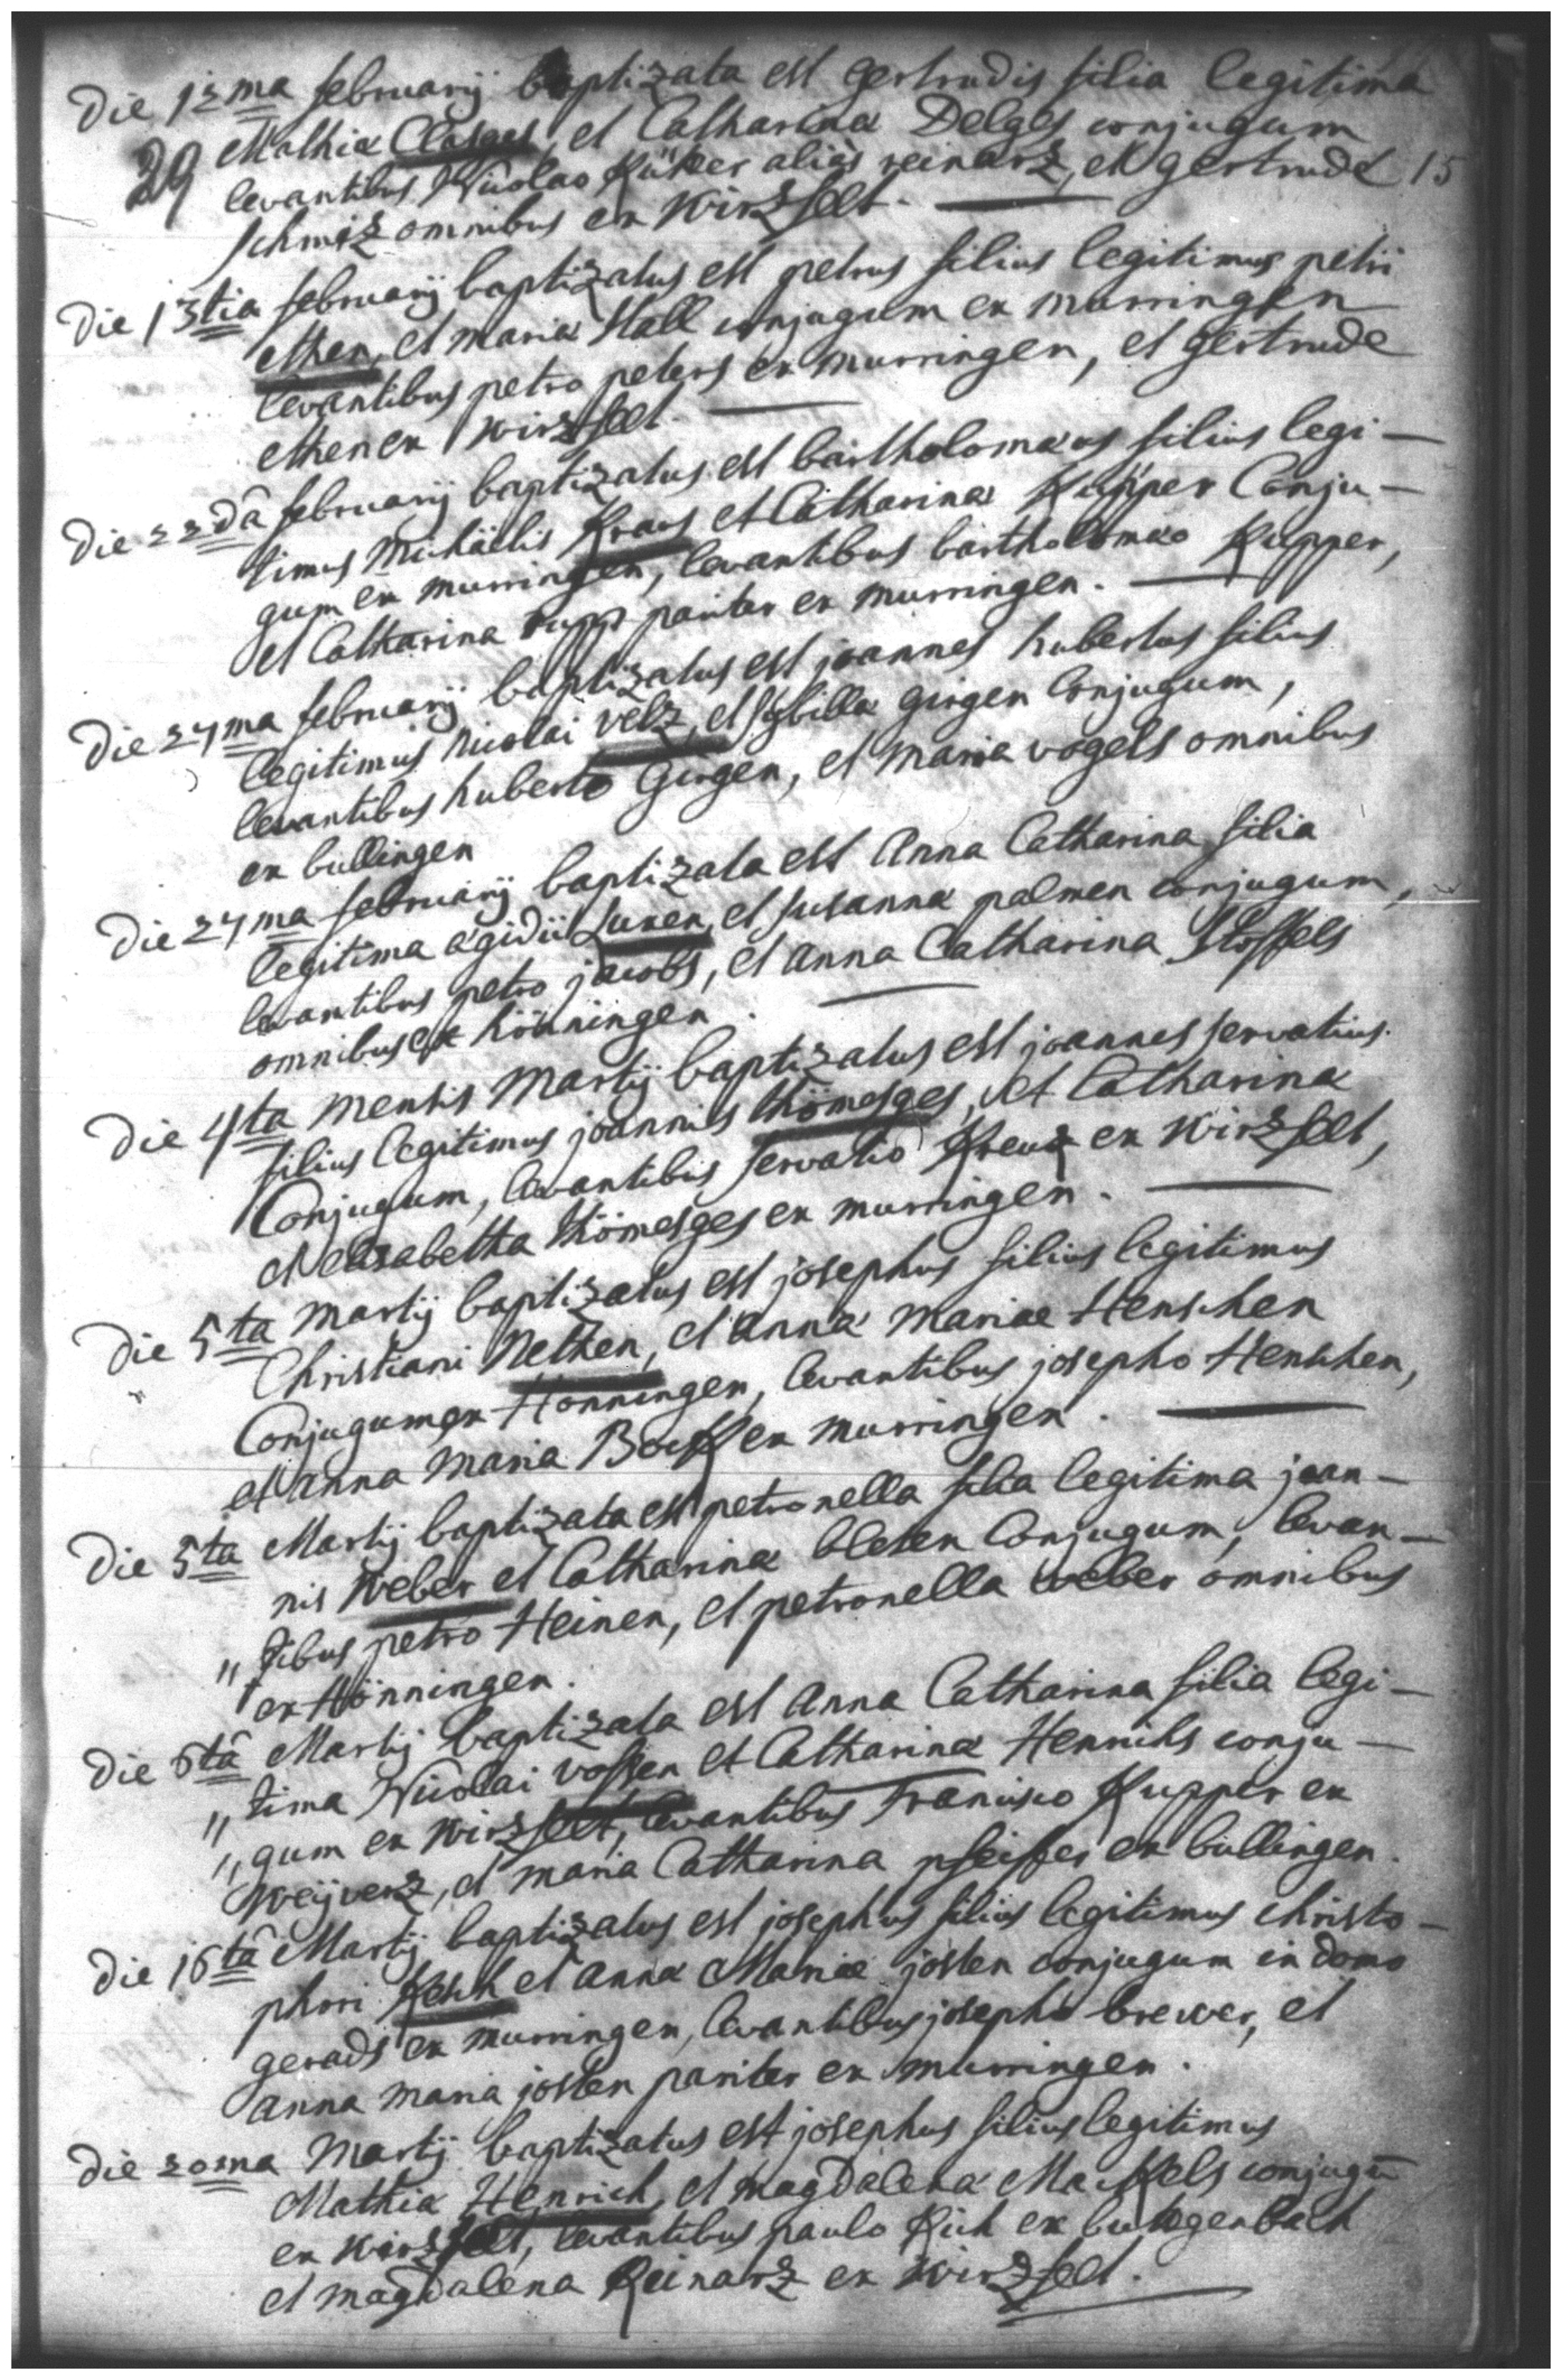 Die 12ma februarij baptizata est gertrudis filia legitima
Mathiæ Clasges, et Catharinæ Delges conjugum
29 levantibus Nicolao Küpper aliàs reinarz, et gertrude 15
schmiz omnibus ex Wirzfelt.
Die 13tia februarij baptizatus est petrus filius legitimus petri
Athen, et mariæ Stoll conjugum ex murringen
levantibus petro peters ex murringen, et gertrude
Athen ex Wirzfelt.
Die 22dâ februarij baptizatus est bartholomæus filius legi-
timus Michäelis Kraus et Catharinæ Küpper Conju-
gum ex murringen, levantibus bartholomæo Kupper,
et Catharina rupp pariter ex murringen.
Die 24ma februarij baptizatus est joannes hubertus filius
legitimus Nicolai velz, et sybilla girgen Conjugum,
levantibus huberto Girgen, et maria vogels omnibus
ex bullingen
Die 24ma februarij baptizata est Anna Catharina filia
legitima ægidii Luxen, et susannæ palmen conjugum,
levantibus petro jacobs, et anna Catharina Stoffels
omnibus ex hönningen.
Die 4ta mensis Martij baptizatus est joannes servatius
filius legitimus joannis thömesges, et Catharinæ
Conjugum, levantibis servatio Kreuz ex Wirzfelt,
et elisabetha thömesges ex murringen.
Die 5ta Martij baptizatus est josephus filius legitimus
Christiani Nethen, et annæ mariae Henschen
Conjugum ex Hönningen, levantibus josepho Henschen,
et anna maria ex murringen.
Die 5ta Martij baptizata est petronella filia legitima joan-
nis Weber et Catharinæ bleten Conjugum, levan-
„ tibus petro Heinen, et petronella weber omnibus
ex Hönningen.
Die 6tâ Martij baptizata est Anna Catharina filia legi-
„ tima Nicolai vossen et Catharinæ Henrichs conju-
„ gum ex Wirzfelt, levantibus Francisco Kupper ex
Weijverz, et maria Catharina pfeiffer ex bullingen.
Die 16tâ Martij baptizatus est josephus filius legitimus christo-
phori Kesch et annæ Mariæ josten conjugum in domo
gerads ex murringen, levantibus josepho brewer, et
anna maria josten pariter ex murringen.
Die 20ma Martij baptizatus est josephus filius legitimus
Mathiæ Henrich, et magdalenæ Mackels conjugū
ex Wirzfelt, levantibus paulo Rich ex butgenbach
et magdalena Reinarz ex Wirzfelt.